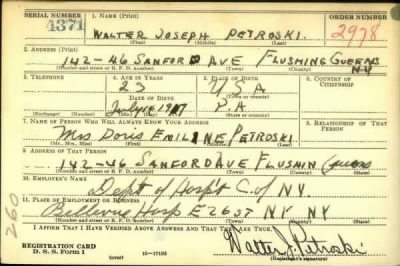 SERIAL NUMBER 1. NAME (Print) ORDER NUMBER
4371 WALTER JOSEPH PETROSKI. 2978
(First) (Middle) (Last)
2. ADDRESS (Print)
142-46 SANFORD AVE FLUSHING QUEENS N-Y
(Number and street or R. F. D. number) (Town) (County) (State)
3. TELEPHONE 4. AGE IN YEARS 5. PLACE OF BIRTH 6. COUNTRY OF CITIZENSHIP
23 U.S.A
DATE OF BIRTH
July 1917 P.A
(Exchange) (Number) (Mo.) (Day) (Yr.) (State or country)
7. NAME OF PERSON WHO WILL ALWAYS KNOW YOUR ADDRESS 8. RELATIONSHIP OF THAT PERSON
Mrs Doris EMILINE PETROSKI
(Mr., Mrs., Miss) (First) (Middle) (Last)
9. ADDRESS OF THAT PERSON
142-46 SANFORD AVE FLUSHIN Queens
(Number and street or R. F. D. number) (Town) (County) (State)
10. EMPLOYER'S NAME
Dept of Hosp't C. of N.Y.
11. PLACE OF EMPLOYMENT OR BUSINESS
Bellevue Hosp E 26 ST NY NY
(Number and street or R. F. D. number) (Town) (County) (State)
I AFFIRM THAT I HAVE VERIFIED ABOVE ANSWERS AND THAT THEY ARE TRUE.
260
REGISTRATION CARD
D. S. S. Form 1 (over) 16-17105 Walter J. Petroski
(Registrant's signature)